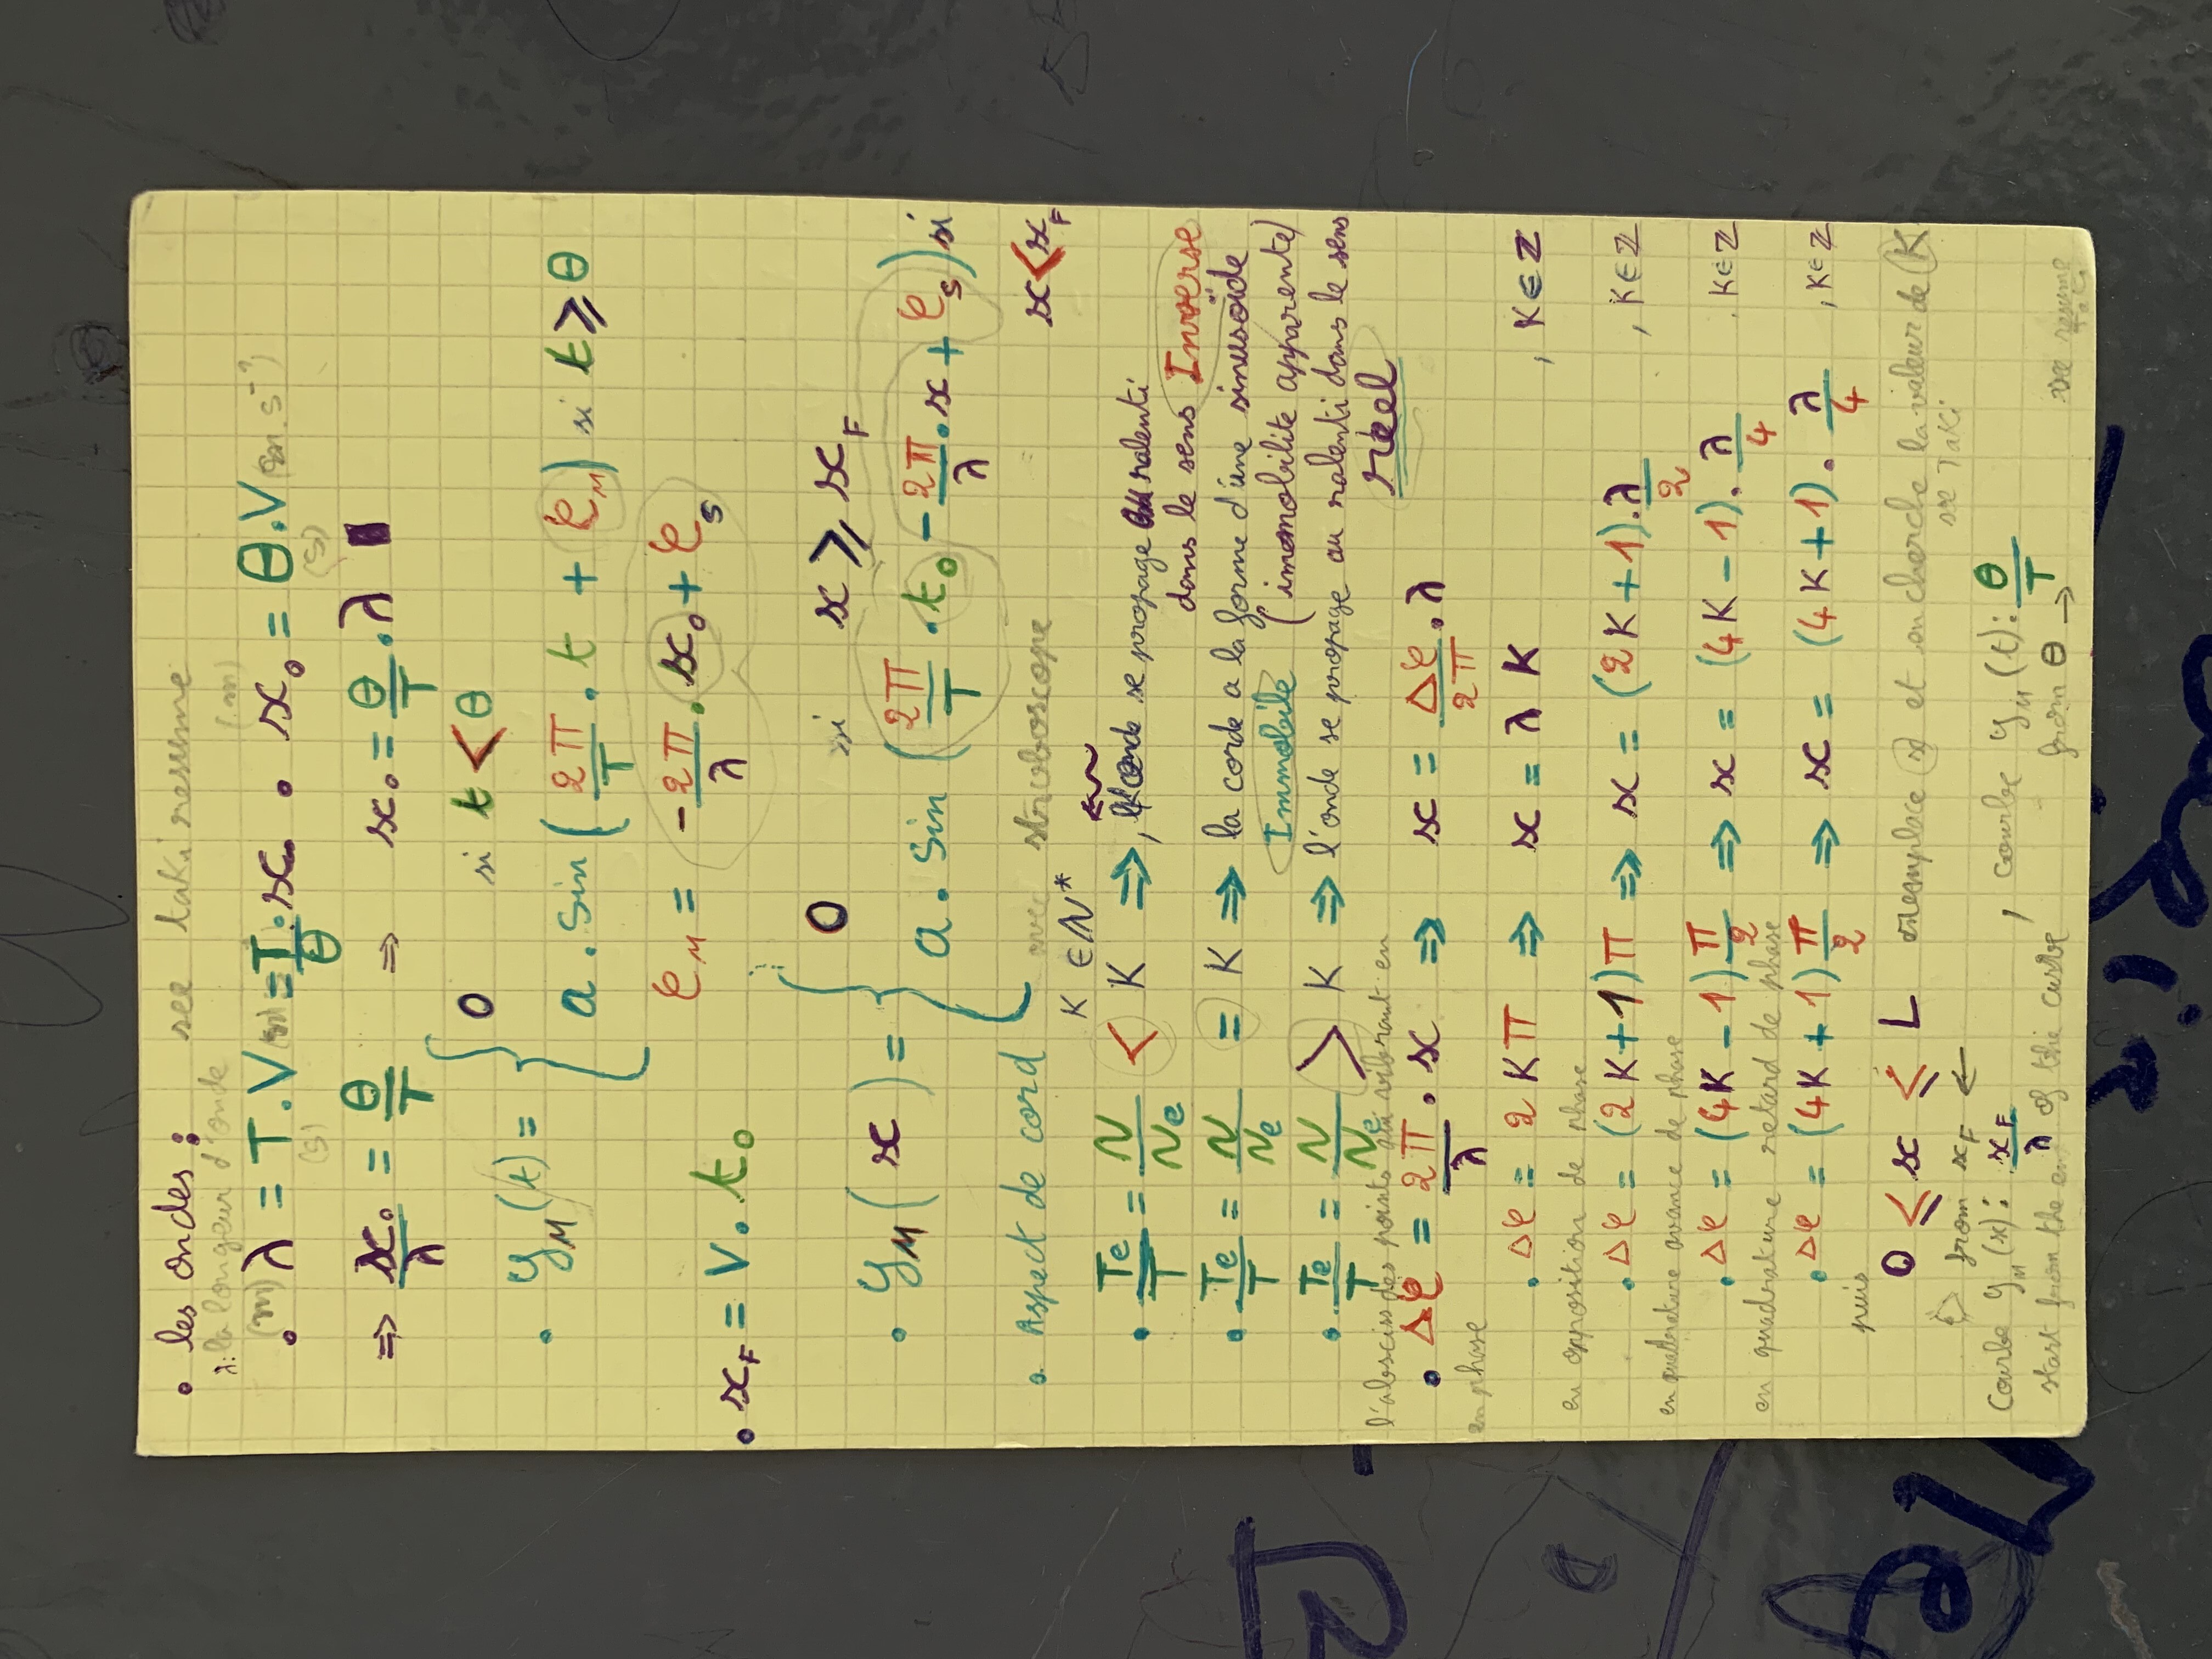 • les ondes : see taki resume
λ: la longeur d'onde
• (m) λ = T . V = T/θ . x₀ • x₀ (m) = θ . V (m.s⁻¹)
(s) (s)
⇒ x₀/λ = θ/T ⇒ x₀ = θ/T . λ
0 si t < θ
• y_M(t) = {
a . sin ( 2π/T . t + φ_M ) si t ⩾ θ
φ_M = -2π/λ . x₀ + φ_s
• x_F = V . t₀
0 si x ⩾ x_F
• y_M( x ) = {
a . sin ( 2π/T . t₀ - 2π/λ . x + φ_s ) si
x < x_F
• Aspect de cord avec stroboscope
K ∈ N*
• Te/T = N/Ne < K ⇒ , l'onde se propage au ralenti
dans le sens Inverse
• Te/T = N/Ne = K ⇒ la corde a la forme d'une sinusoïde
Immobile (immobilite apparente)
• Te/T = N/Ne > K ⇒ l'onde se propage au ralenti dans le sens
réel
l'absciss des points qui vibrant en
• Δφ = 2π/λ . x ⇒ x = Δφ/2π . λ
en phase
. Δφ = 2Kπ ⇒ x = λ K , K∈Z
en opposition de phase
. Δφ = (2K+1)π ⇒ x = (2K+1).λ/2 , K∈Z
en quadrature avance de phase
. Δφ = (4K - 1)π/2 ⇒ x = (4K - 1). λ/4 . K∈Z
en quadrature retard de phase
. Δφ = (4K + 1)π/2 ⇒ x = (4K+1). λ/4 , K∈Z
puis
0 ⩽ x ⩽ L remplace x et on cherche la valeur de K
see Taki
from x_F ←
Courbe y_M(x) : x_F/λ , courbe y_M(t): θ/T
start from the end of the curbe from θ → see resume
Taki